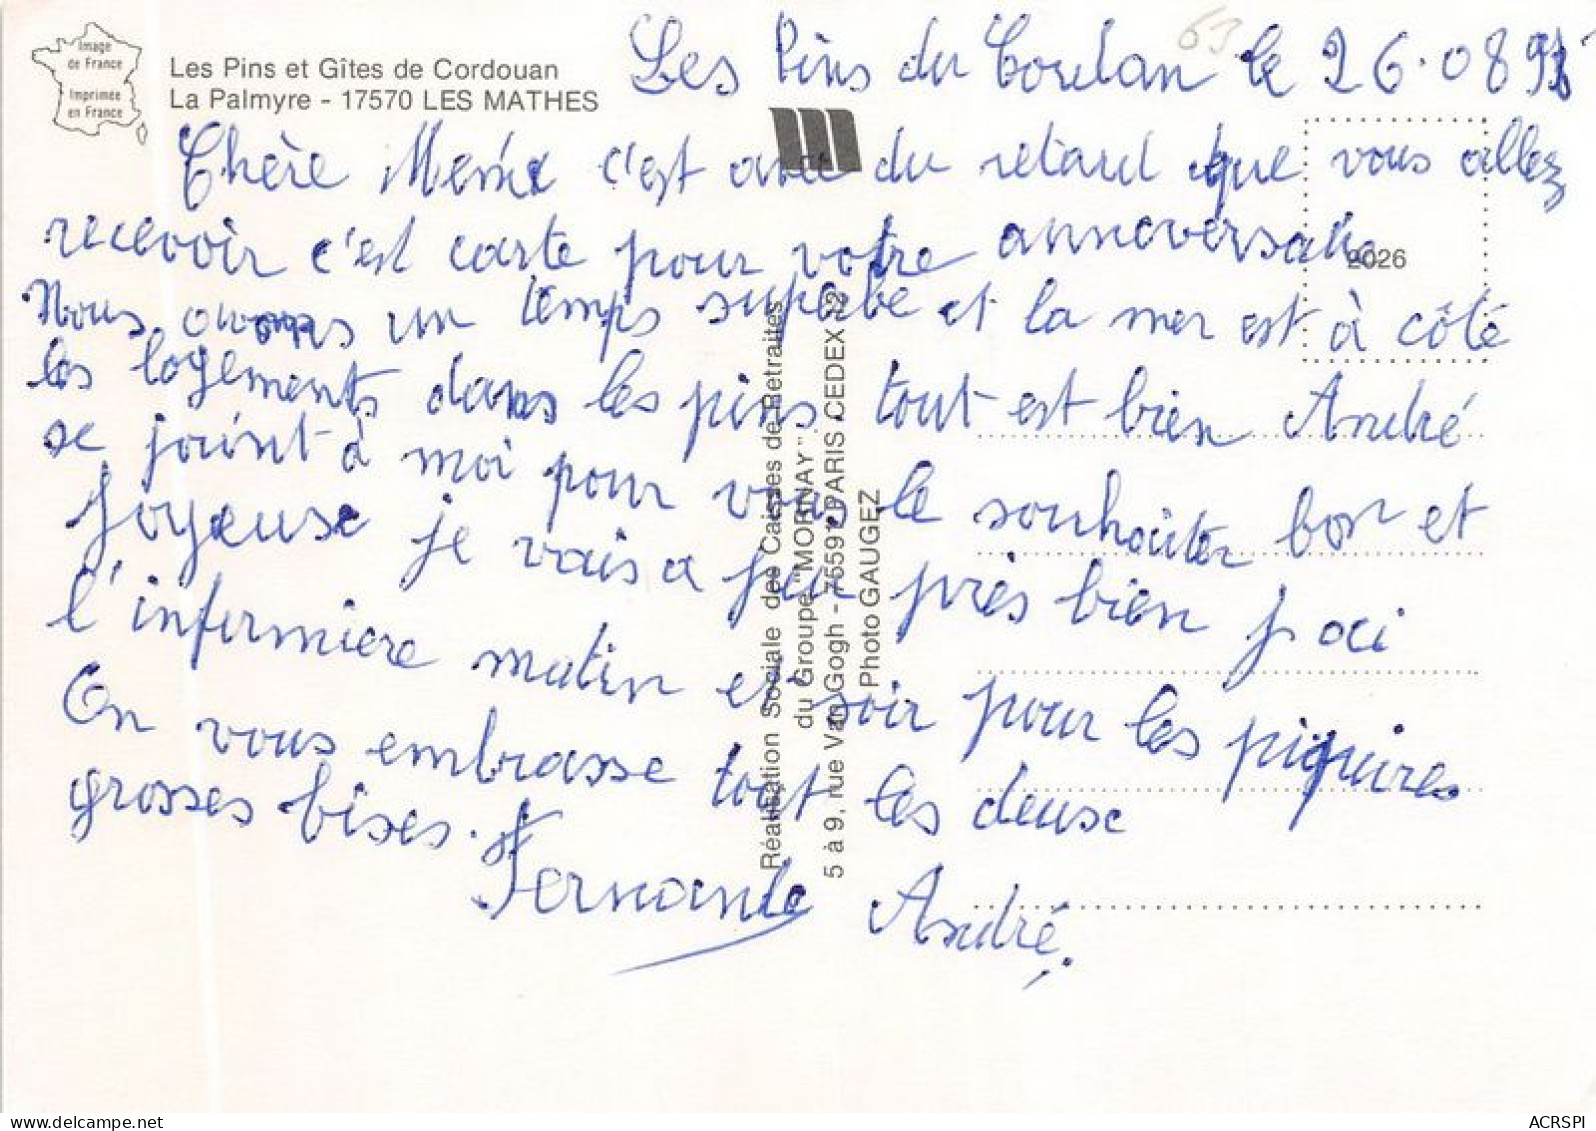 Image
de France
Imprimée
en France
Les Pins et Gîtes de Cordouan
La Palmyre - 17570 LES MATHES
63
Les Pins du Cordan le 26.08.9
Chère c'est avec du retard que vous allez
recevoir c'est carte pour votre
Nous avons un temps superbe et la mer est à côté
les logements dans les pins. tout est bien André
se joint à moi pour vous le souhaiter bon et
Joyeuse je vais a peu près bien j aci
l'infermiere matin et soir pour les piquires
On vous embrasse tout les deuse
grosses bises.
Fernande André.
2026
Réalisation Sociale des Caisses de Retraites
du Groupe "MORNAY".
5 à 9, rue Van Gogh - 75591 PARIS CEDEX 12
Photo GAUGEZ
www.delcampe.net
ACRSPI